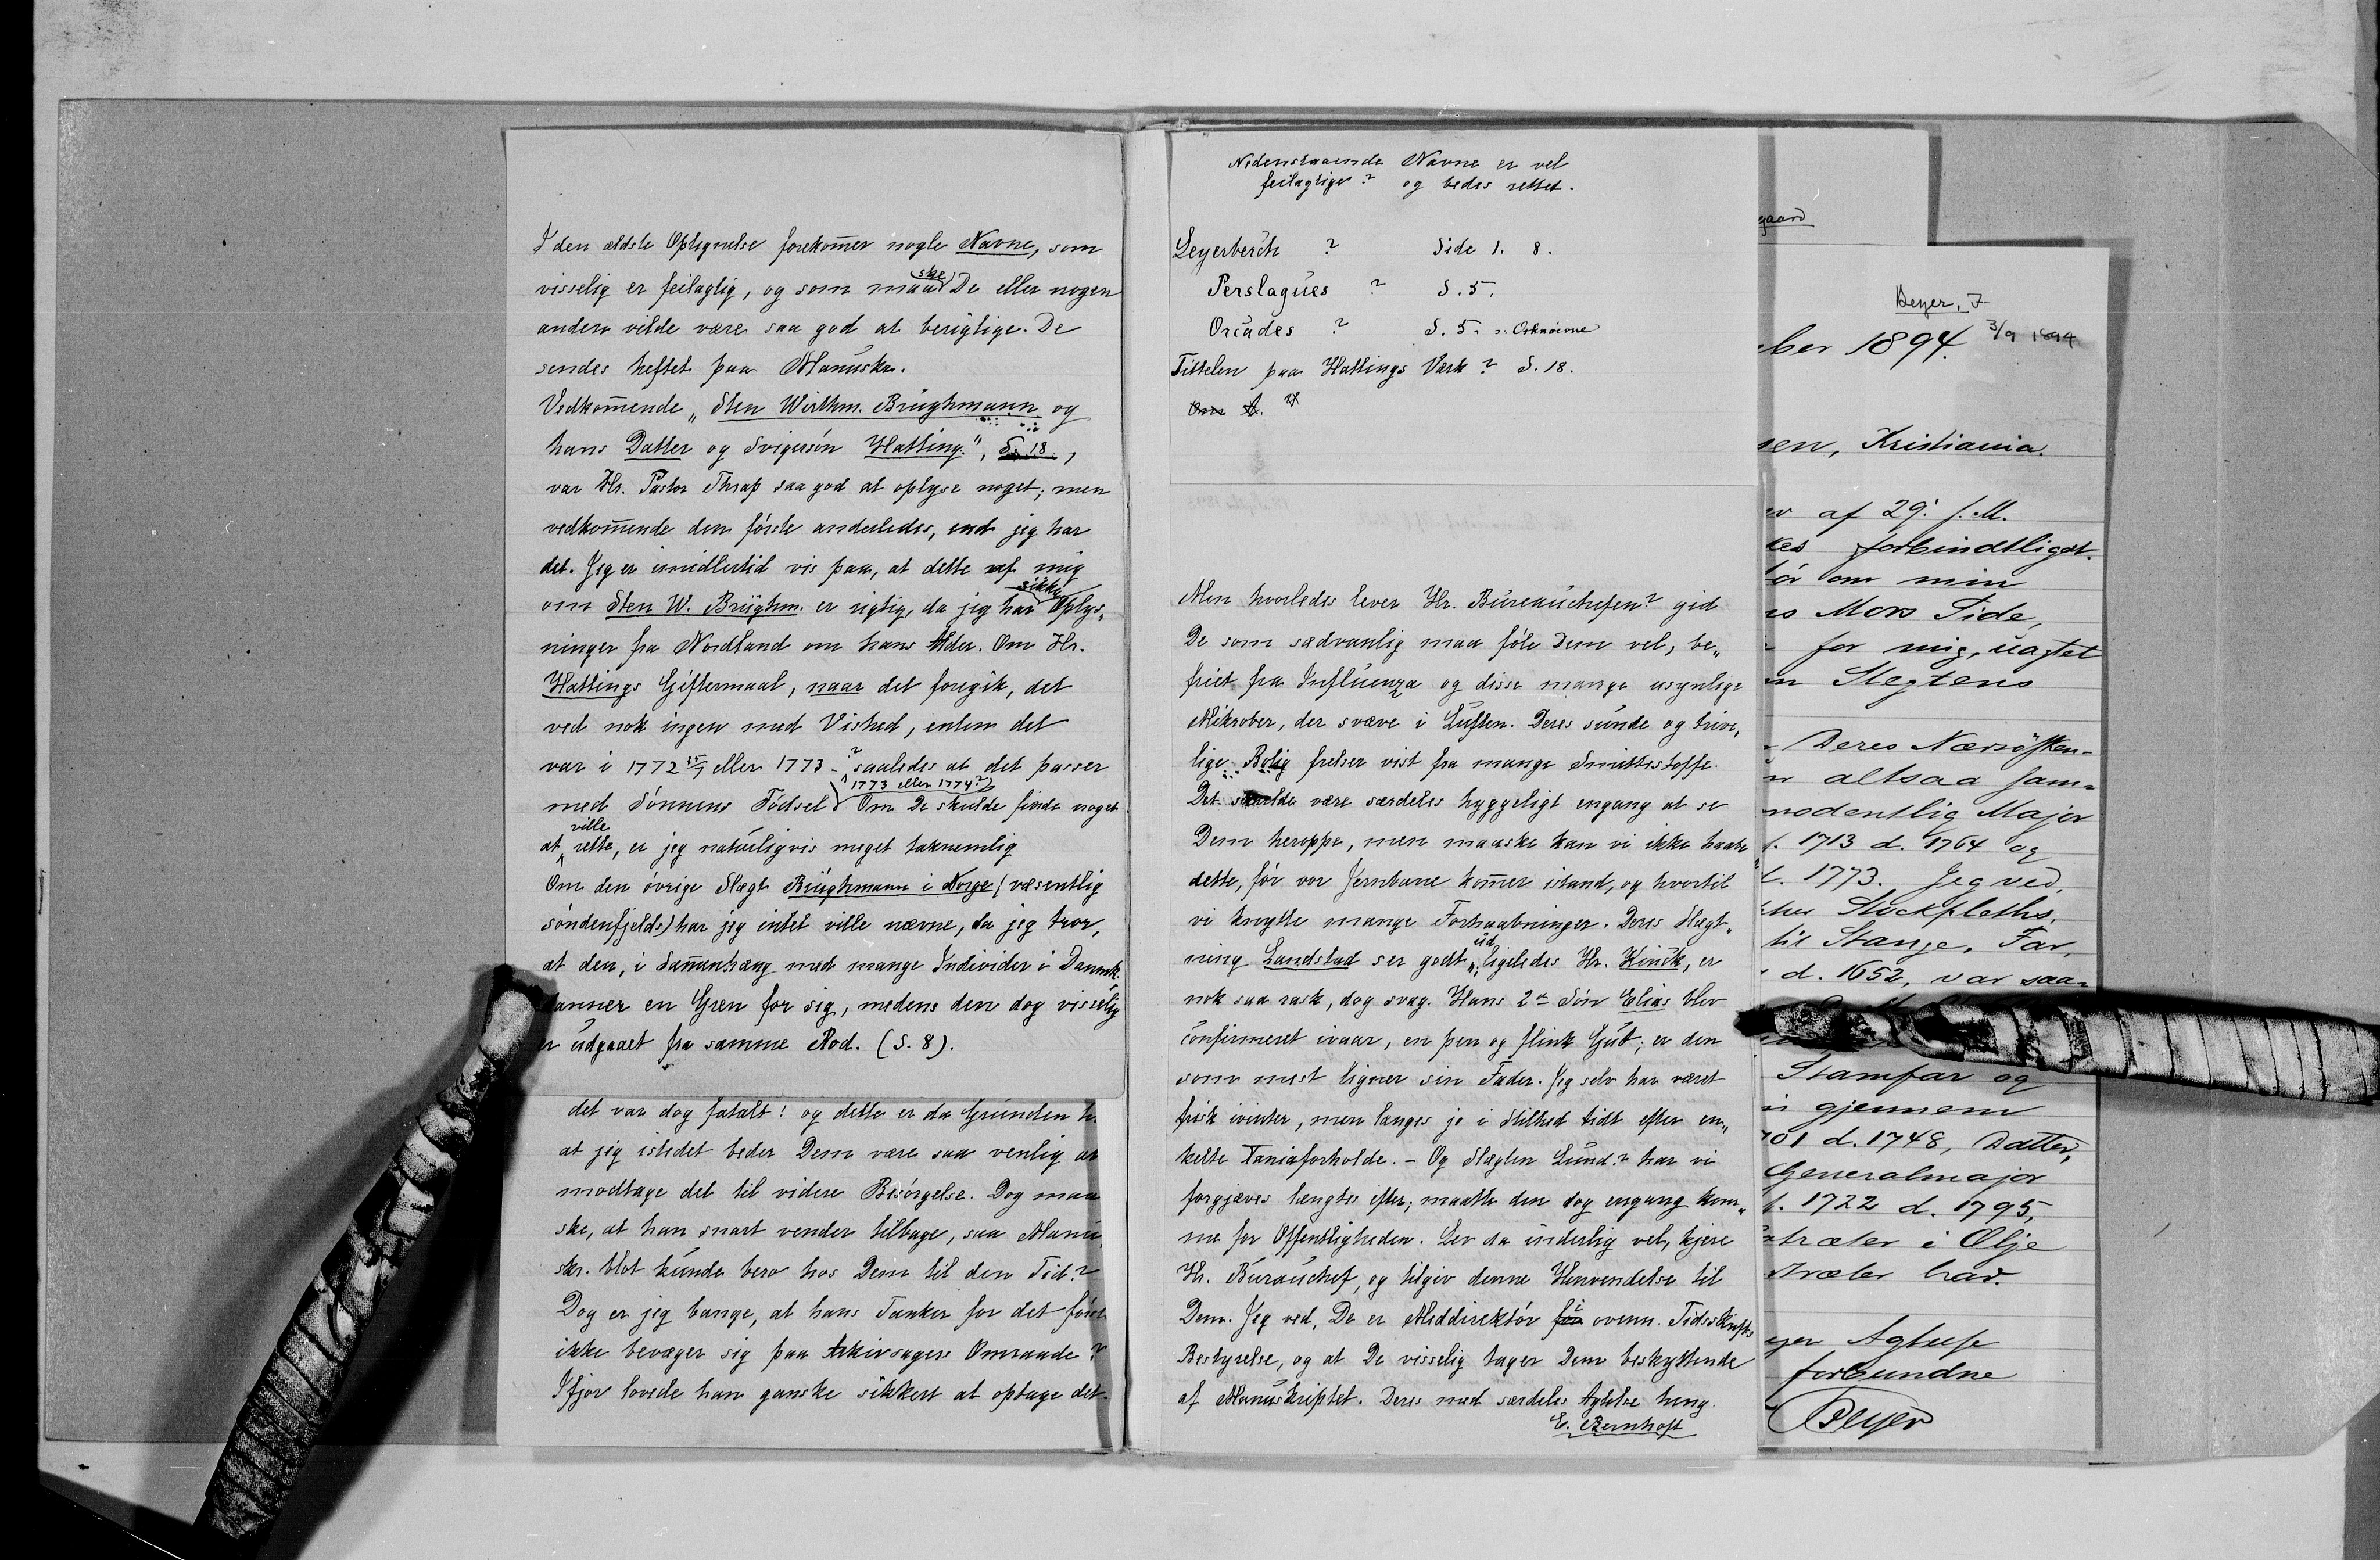 I den ældste Optegnelse forekom̅er nogle Navne, som
visselig er feilagtig, og som maaske De eller nogen
anden vilde være saa god at berigtige. De
sendes heftet paa Manuskr.
Vedkom̅ende „Sten Wirthm. Brüghmann og
hans Datter og Svigersön Hatting.", S. 18.,
var Hr. Pastor Thrap saa god at oplyse noget; men
vedkom̅ende den förste anderledes, end jeg har
det. Jeg er imidlertid vis paa, at dette af mig
om Sten W. Brüghm. er rigtig, da jeg har sikkre Oplys„
ninger fra Nordland om hans Alder. Om Hr.
Hattings Giftermaal, naar det foregik, det
ved nok ingen med Vished, enten det
var i 1772 eller 1773 - ? saaledes at det passer
med Sönnens Födsel 1773 eller 1774? Om De skulde finde noget
at ville rette, er jeg naturligvis meget taknemlig
Om den övrige Slægt Brüghmann i Norge (væsentlig
söndenfjelds) har jeg intet ville nævne, da jeg tror,
at den, i Sam̅enhæng med mange Individer i Danmk.
danner en Gren for sig, medens den dog visselig
er udgaaet fra samme Rod. (S. 8).
det var dog fatalt! og dette er da Grunden t.
at jeg istedet beder Dem være saa venlig at
modtage det til videre Besörgelse. Dog maa
ske, at han snart vender tilbage, saa Manu„
skr. blot kunde bero hos Dem til den Tid?
Dog er jeg bange, at hans Tanker for det förste
ikke bevæger sig paa Arkivsagers Omraade?
Ifjor lovede han ganske sikkert at optage det.
Nedenstaaende Navne er vel
feilagtige? og bedes rettet.
Leyerberch ? Side 1. 8.
Perslagues ? S. 5.
Orcades ? S. 5. ɔ: Orknöerne
Tittelen paa Hattings Værk? S. 18.
Men hvorledes lever Hr. Bureauchefen? gid
De som sædvanlig maa föle Dem vel, be„
friet fra Influenza og disse mange usynlige
Mikrober, der svæve i Luften. Deres sunde og trive„
lige Bolig frelser vist fra mange Smittestoffe.
Det skulde være særdeles hyggeligt engang at se
Dem heroppe, men maaske kan vi ikke haabe
dette, för vor Jernbane kom̅er istand, og hvortil
vi knytte mange Forhaabninger. Deres Slægt„
ning Landstad ser godt ud, ligeledes Hr. Kinck, er
nok saa rask, dog svag. Hans 2den Sön Elias blev
confirmeret ivaar, en pen og flink Gut; er den
som mest ligner sin Fader. Jeg selv har været
frisk ivinter, men længes jo i Stilhed tidt efter en„
kelte Taniaforholde. - Og Slægten Lund? har vi
forgjæves længtes efter; maatte den dog engang kom„
me for Offentligheden. Lev da inderlig vel, kjere
Hr. Burauchef, og tilgiv denne Henvendelse til
Dem. Jeg ved, De er Meddirektör for i ovenn. Tidsskrifts
Bestyrelse, og at De visselig tager Dem beskyttende
af Manuskriptet. Deres med særdeles Agtelse heng.
E. Bernhoft
gaard
Beyer, F
3/9 1894
ber 1894.
sen, Kristiania.
af 29. f. M.
kes forbindtligst.
för om min
es Mors Side,
for mig, uagtet
en Slegtens
Deres Nærsösken-
n altsaa sam-
modentlig Major
f. 1713 d. 1764 og
f. 1773. Jeg ved,
Stockfleths,
til Stange. Far,
d. 1652, var saa-
Stamfar og
gjennem
701 d. 1748, Datter„
Generalmajor
f. 1722 d. 1795,
træter i Olje
træter har.
Agtelse
forbundne
Beyer